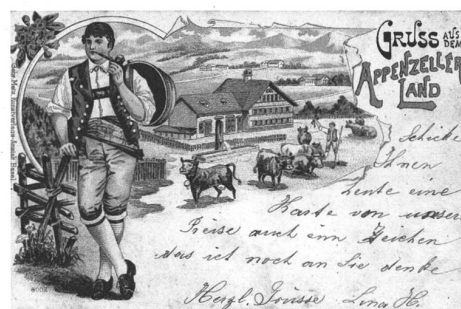 GRUSS AUS
DEM
APPENZELLER
LAND
Schicke
Ihnen
heute eine
Karte von unser
Reise auch ein Zeichen
das ich noch an Sie denke
Herzl. Grüsse Lina H.